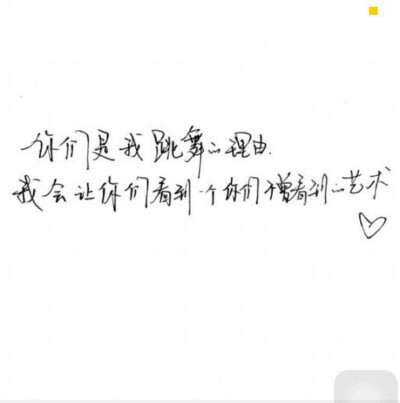 你们是我跳舞的理由.
我会让你们看到一个你们不曾看到的艺术